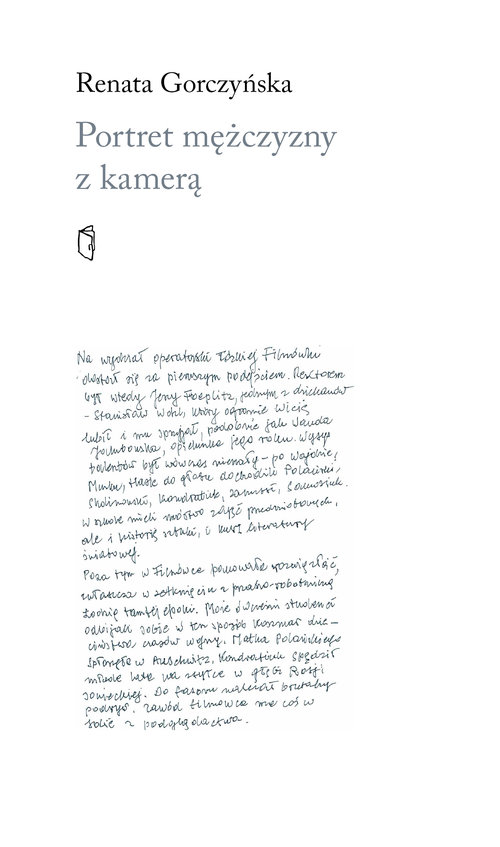 Renata Gorczyńska
Portret mężczyzny
z kamerą
Na wydział operatorski łódzkiej Filmówki
dostał się za pierwszym podejściem. Rektorem
był wtedy Jerzy Toeplitz, jednym z dziekanów
– Stanisław Wohl, który ogromnie Wicię
lubił i mu sprzyjał, podobnie jak Wanda
Jakubowska, opiekunka jego roku. Wysyp
talentów był wówczas niemały – po Wajdzie,
Munku, Hasie do głosu dochodzili Polański,
Skolimowski, Kondratiuk, Zanussi,
W szkole mieli mnóstwo zajęć przedmiotowych,
ale i historię sztuki, i kurs literatury
światowej.
Poza tym w Filmówce panowała
zwłaszcza w zetknięciu z prasko-robotniczą
Łodzią tamtej epoki. Może ówcześni studenci
odbijali sobie w ten sposób koszmar dzie-
ciństwa czasów wojny. Matka Polańskiego
spłonęła w Auschwitz, Kondratiuk spędził
młode lata na zsyłce w głębi Rosji
sowieckiej. Do fasonu należał brutalny
podryw. Zawód filmowca ma coś w
sobie z podglądactwa.